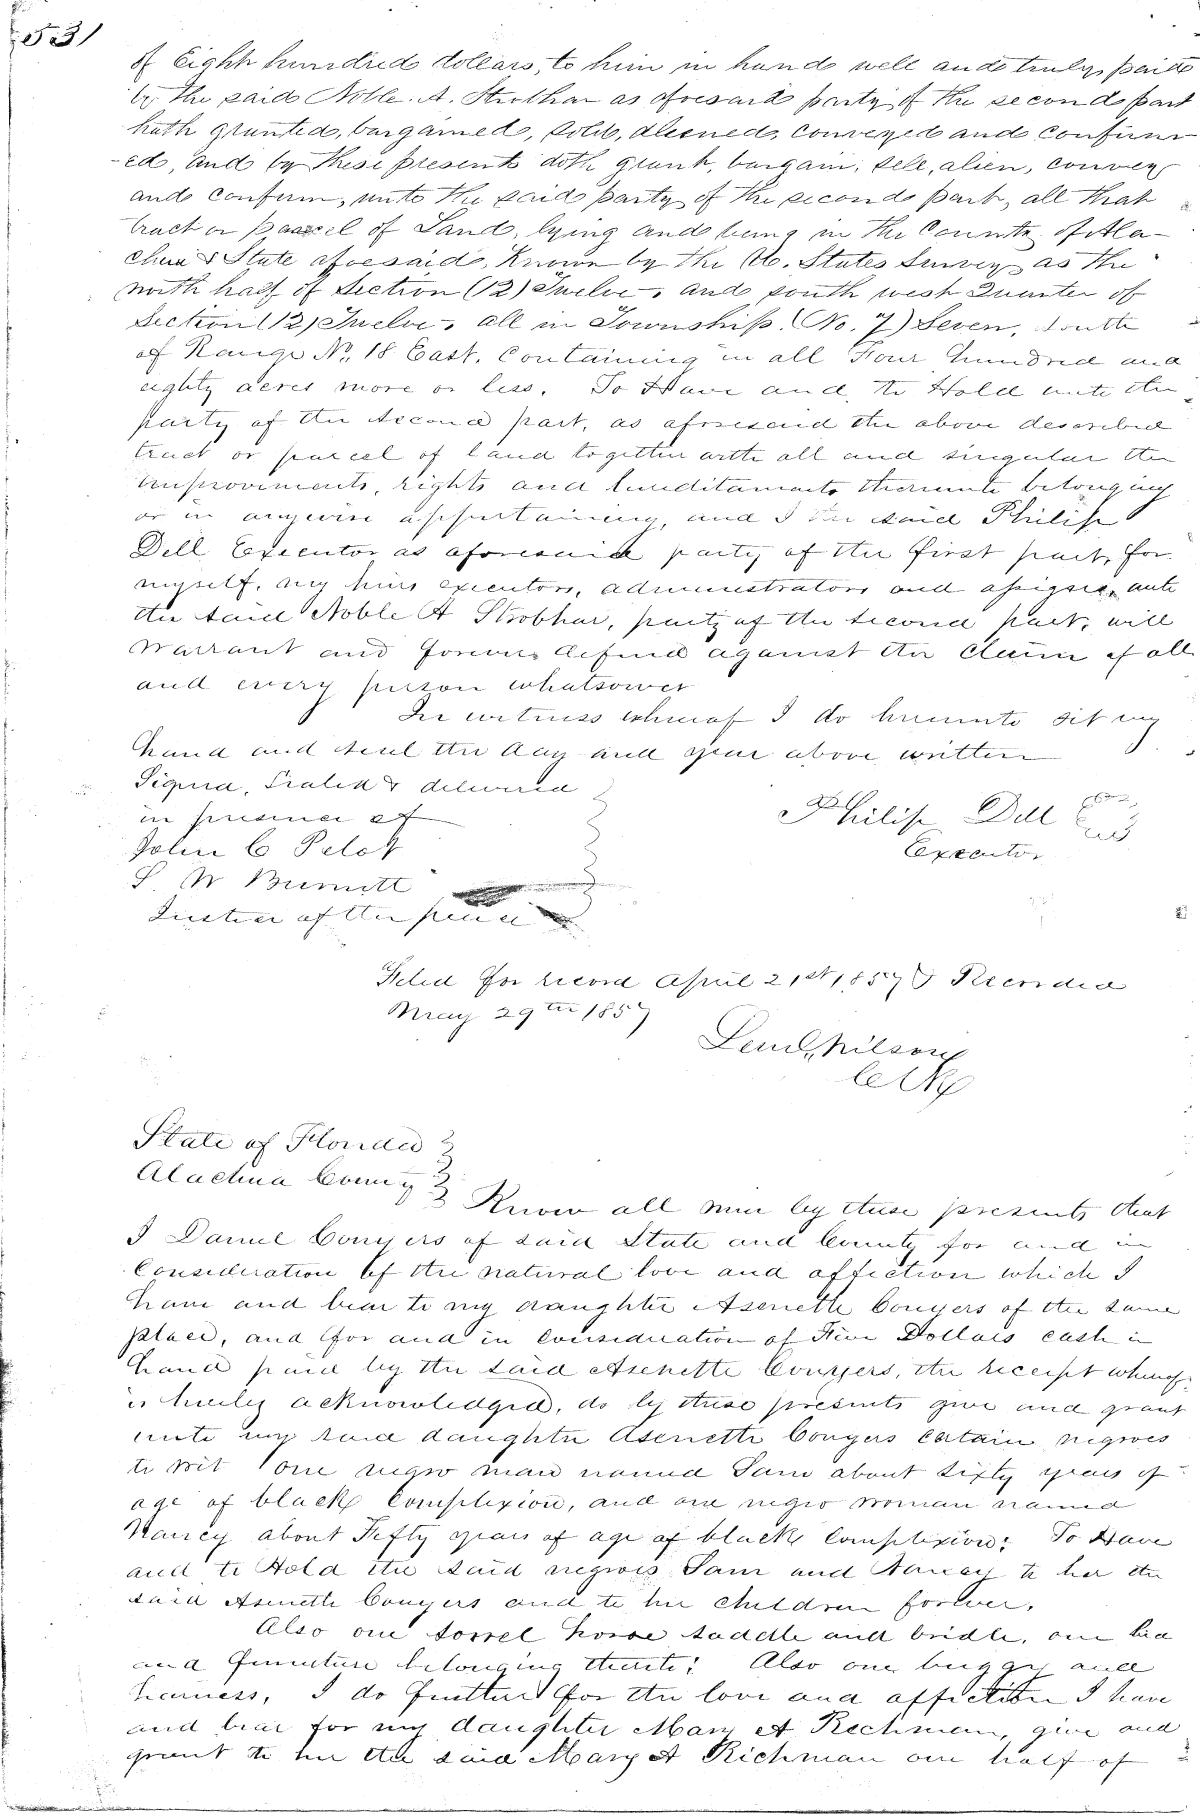 531
of Eight hundred dollars, to him in hand well and truly paid
by the said Noble. A. Strobhar as aforesaid party of the second part
hath granted, bargained, sold, aliened, conveyed and confirm
-ed, and by these presents doth grant, bargain, sell, alien, convey
and confirm, unto the said party of the second part, all that
tract or parcel of Land, lying and being in the County of Ala-
chua & State aforesaid, Known by the U. States Survey as the
north half of Section (12) Twelve, and south west Quarter of
Section (12) Twelve, all in Township (No. 7) Seven, South
of Range No. 18 East. Containing in all Four hundred and
eighty acres more or less. To Have and to Hold unto the
party of the second part, as aforesaid the above described
tract or parcel of land together with all and singular the
improvements, rights and hereditaments thereunto belonging
or in anywise appertaining, and I the said Philip
Dell Executor as aforesaid party of the first part, for
myself, my heirs executors, administrators and assigns, unto
the said Noble A Strobhar, party of the second part, will
warrant and forever defend against the claim of all
and every person whatsoever
In witness whereof I do hereunto set my
hand and seal the day and year above written
Signed, Sealed & delivered
in presence of
Philip Dell Seal
Executor
John C Pelot
S. W Burnett
Justice of the peace
Filed for record April 21st 1857 & Recorded
May 29th 1857
Leml. Wilson
Clk
State of Florida
Alachua County
Know all men by these presents that
I Daniel Conyers of said State and County for and in
Consideration of the natural love and affection which I
have and bear to my daughter Asenette Conyers of the same
place, and for and in consideration of Five Dollars cash in
hand paid by the said Asenette Conyers, the receipt whereof
is hereby acknowledged, do by these presents give and grant
unto my said daughter Asenette Conyers certain negroes
to wit one negro man named Sam about sixty years of
age of black complexion, and one negro woman named
Nancy about Fifty years of age of black complexion: To Have
and to Hold the said negroes Sam and Nancy to her the
said Asenette Conyers and to her children forever.
Also one sorrel horse saddle and bridle, one bed
and furniture belonging thereto: Also one buggy and
harness, I do further for the love and affection I have
and bear for my daughter Mary A Richman, give and
grant to her the said Mary A Richman one half of